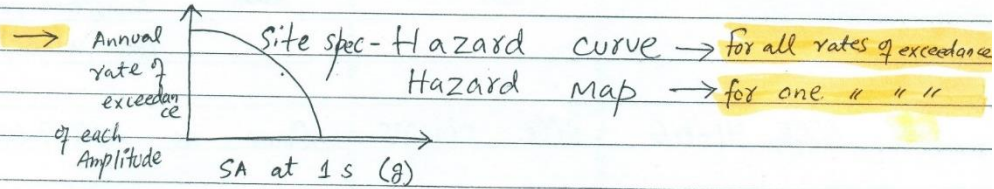 → Annual rate of exceedance of each Amplitude
Site spec-Hazard curve → for all rates of exceedance
Hazard Map → for one " " "
SA at 1 s (g)